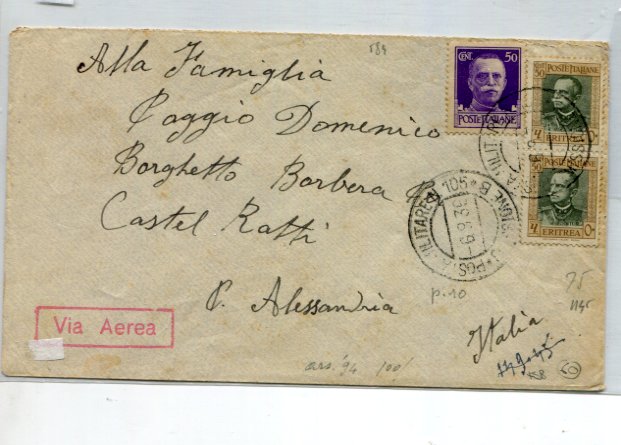 584
Alla Famiglia
Poggio Domenico
Borghetto Borbera
Castel Ratti
P. Alessandria
Italia
CENT. 50
POSTE ITALIANE
50 POSTE ITALIANE
ERITREA
50 POSTE ITALIANE
ERITREA
POSTA MILITARE 105
SEZIONE B
Via Aerea
P.10
75
ars. '94 100/